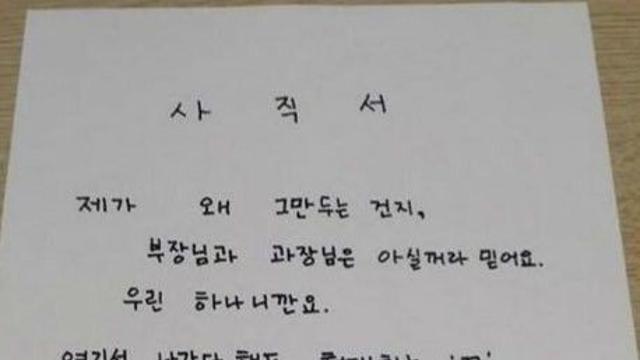 사 직 서
제가 왜 그만두는 건지,
부장님과 과장님은 아실꺼라 믿어요.
우린 하나니깐요.